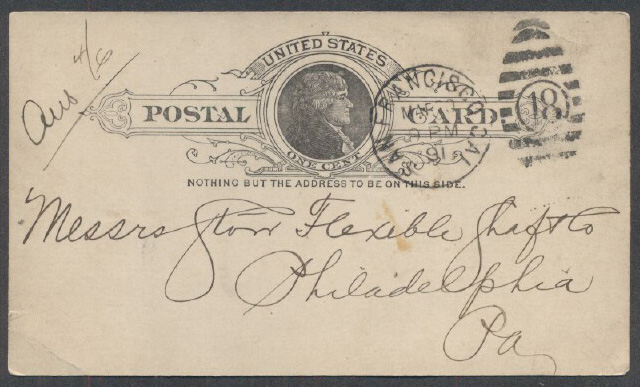 Ans 4/6
UNITED STATES
POSTAL CARD
ONE CENT
NOTHING BUT THE ADDRESS TO BE ON THIS SIDE.
SAN FRANCISCO, CAL
PM
91
18
Messrs Stow Flexible Shaft Co
Philadelphia
Pa